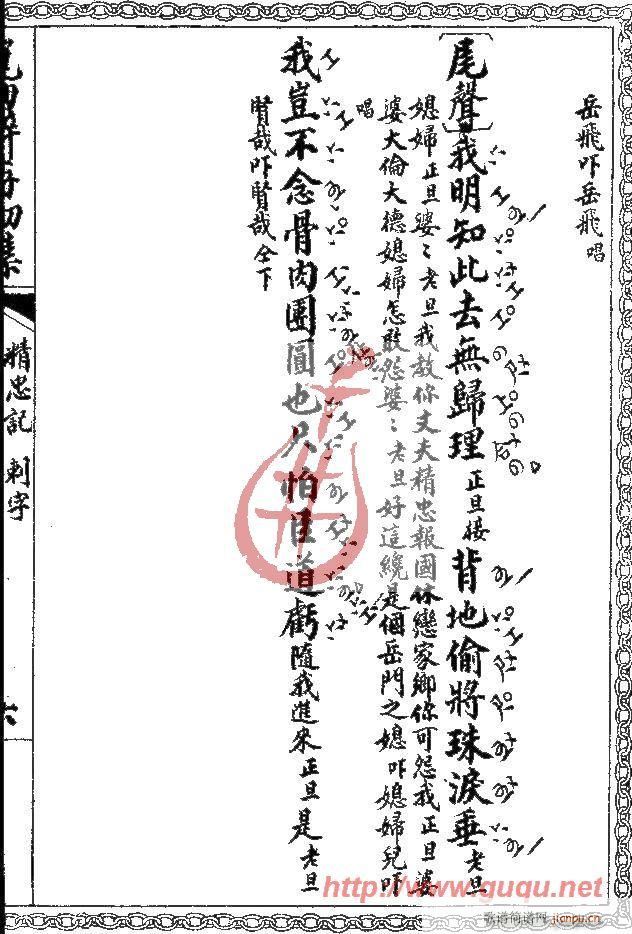 岳飛吓岳飛唱
尾聲我明知此去無歸理正旦接背地偷將珠淚垂老旦
媳婦正旦婆〻老旦我教你丈夫精忠報國休戀家鄉你可怨我正旦婆
婆大倫大德媳婦怎敢怨婆〻老旦好這纔是個岳門之媳吓媳婦兒吓
唱
我豈不念骨肉團圓也只怕臣道虧隨我進來正旦是老旦
賢哉吓賢哉仝下
精忠記 刺字
六
http://www.guqu.net
歌谱简谱网
jianpu.cn